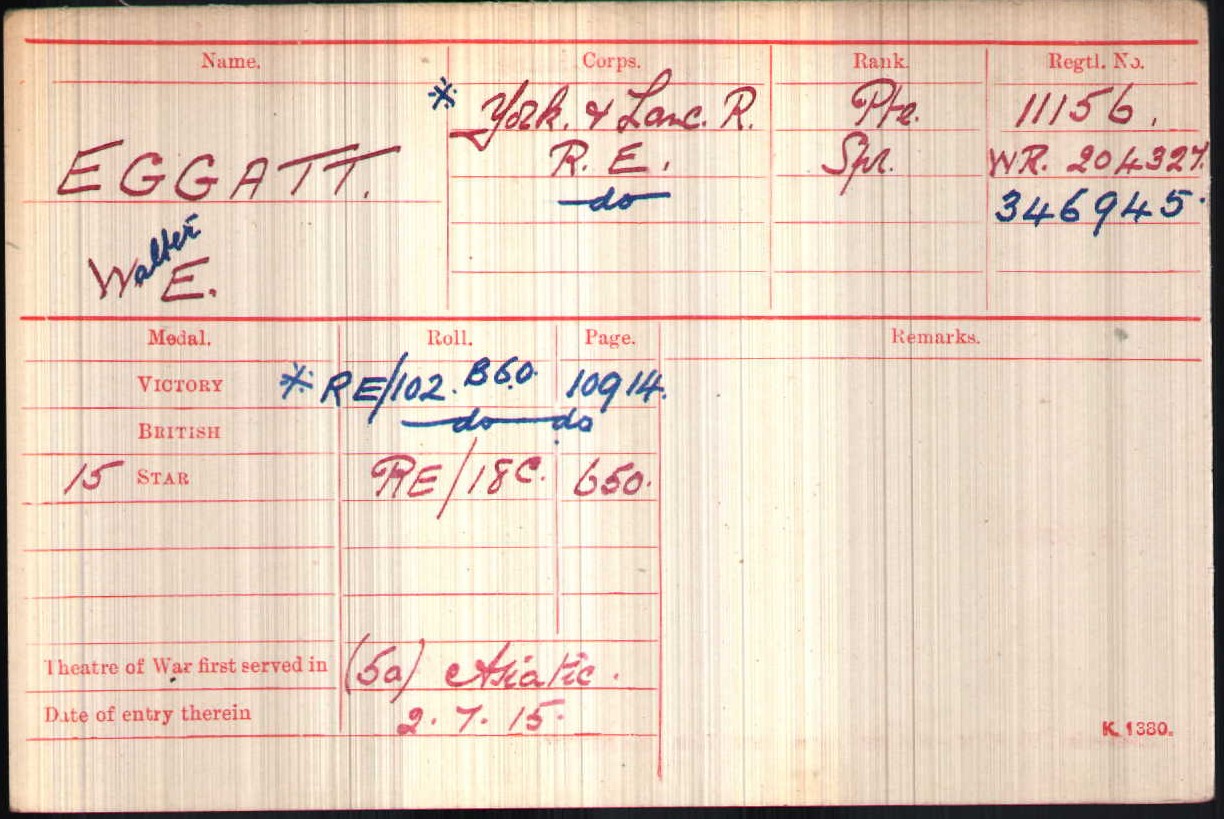 Name. Corps. Rank. Regtl. No.
* York. & Lanc. R. Pte. 11156.
EGGATT. R. E. Spr. WR. 204327.
do 346945.
Walter E.
Medal. Roll. Page. Remarks.
VICTORY * RE/102. B60. 10914.
BRITISH do do
15 STAR RE/18C. 650.
Theatre of War first served in (5a) Asiatic.
Date of entry therein 2.7.15.
K. 1380.